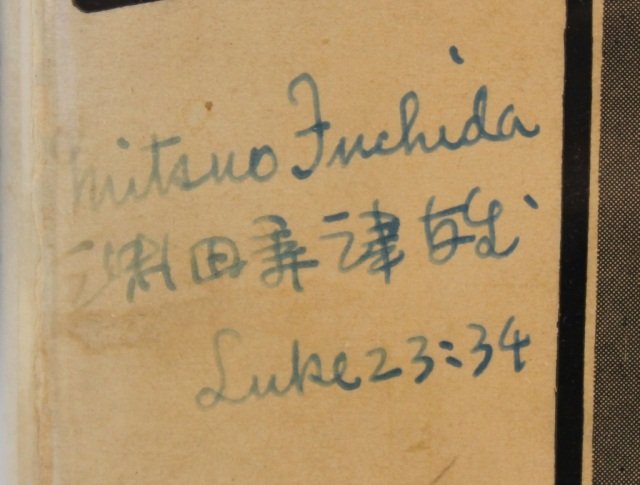 Mitsuo Fuchida
渕田美津雄
Luke 23:34